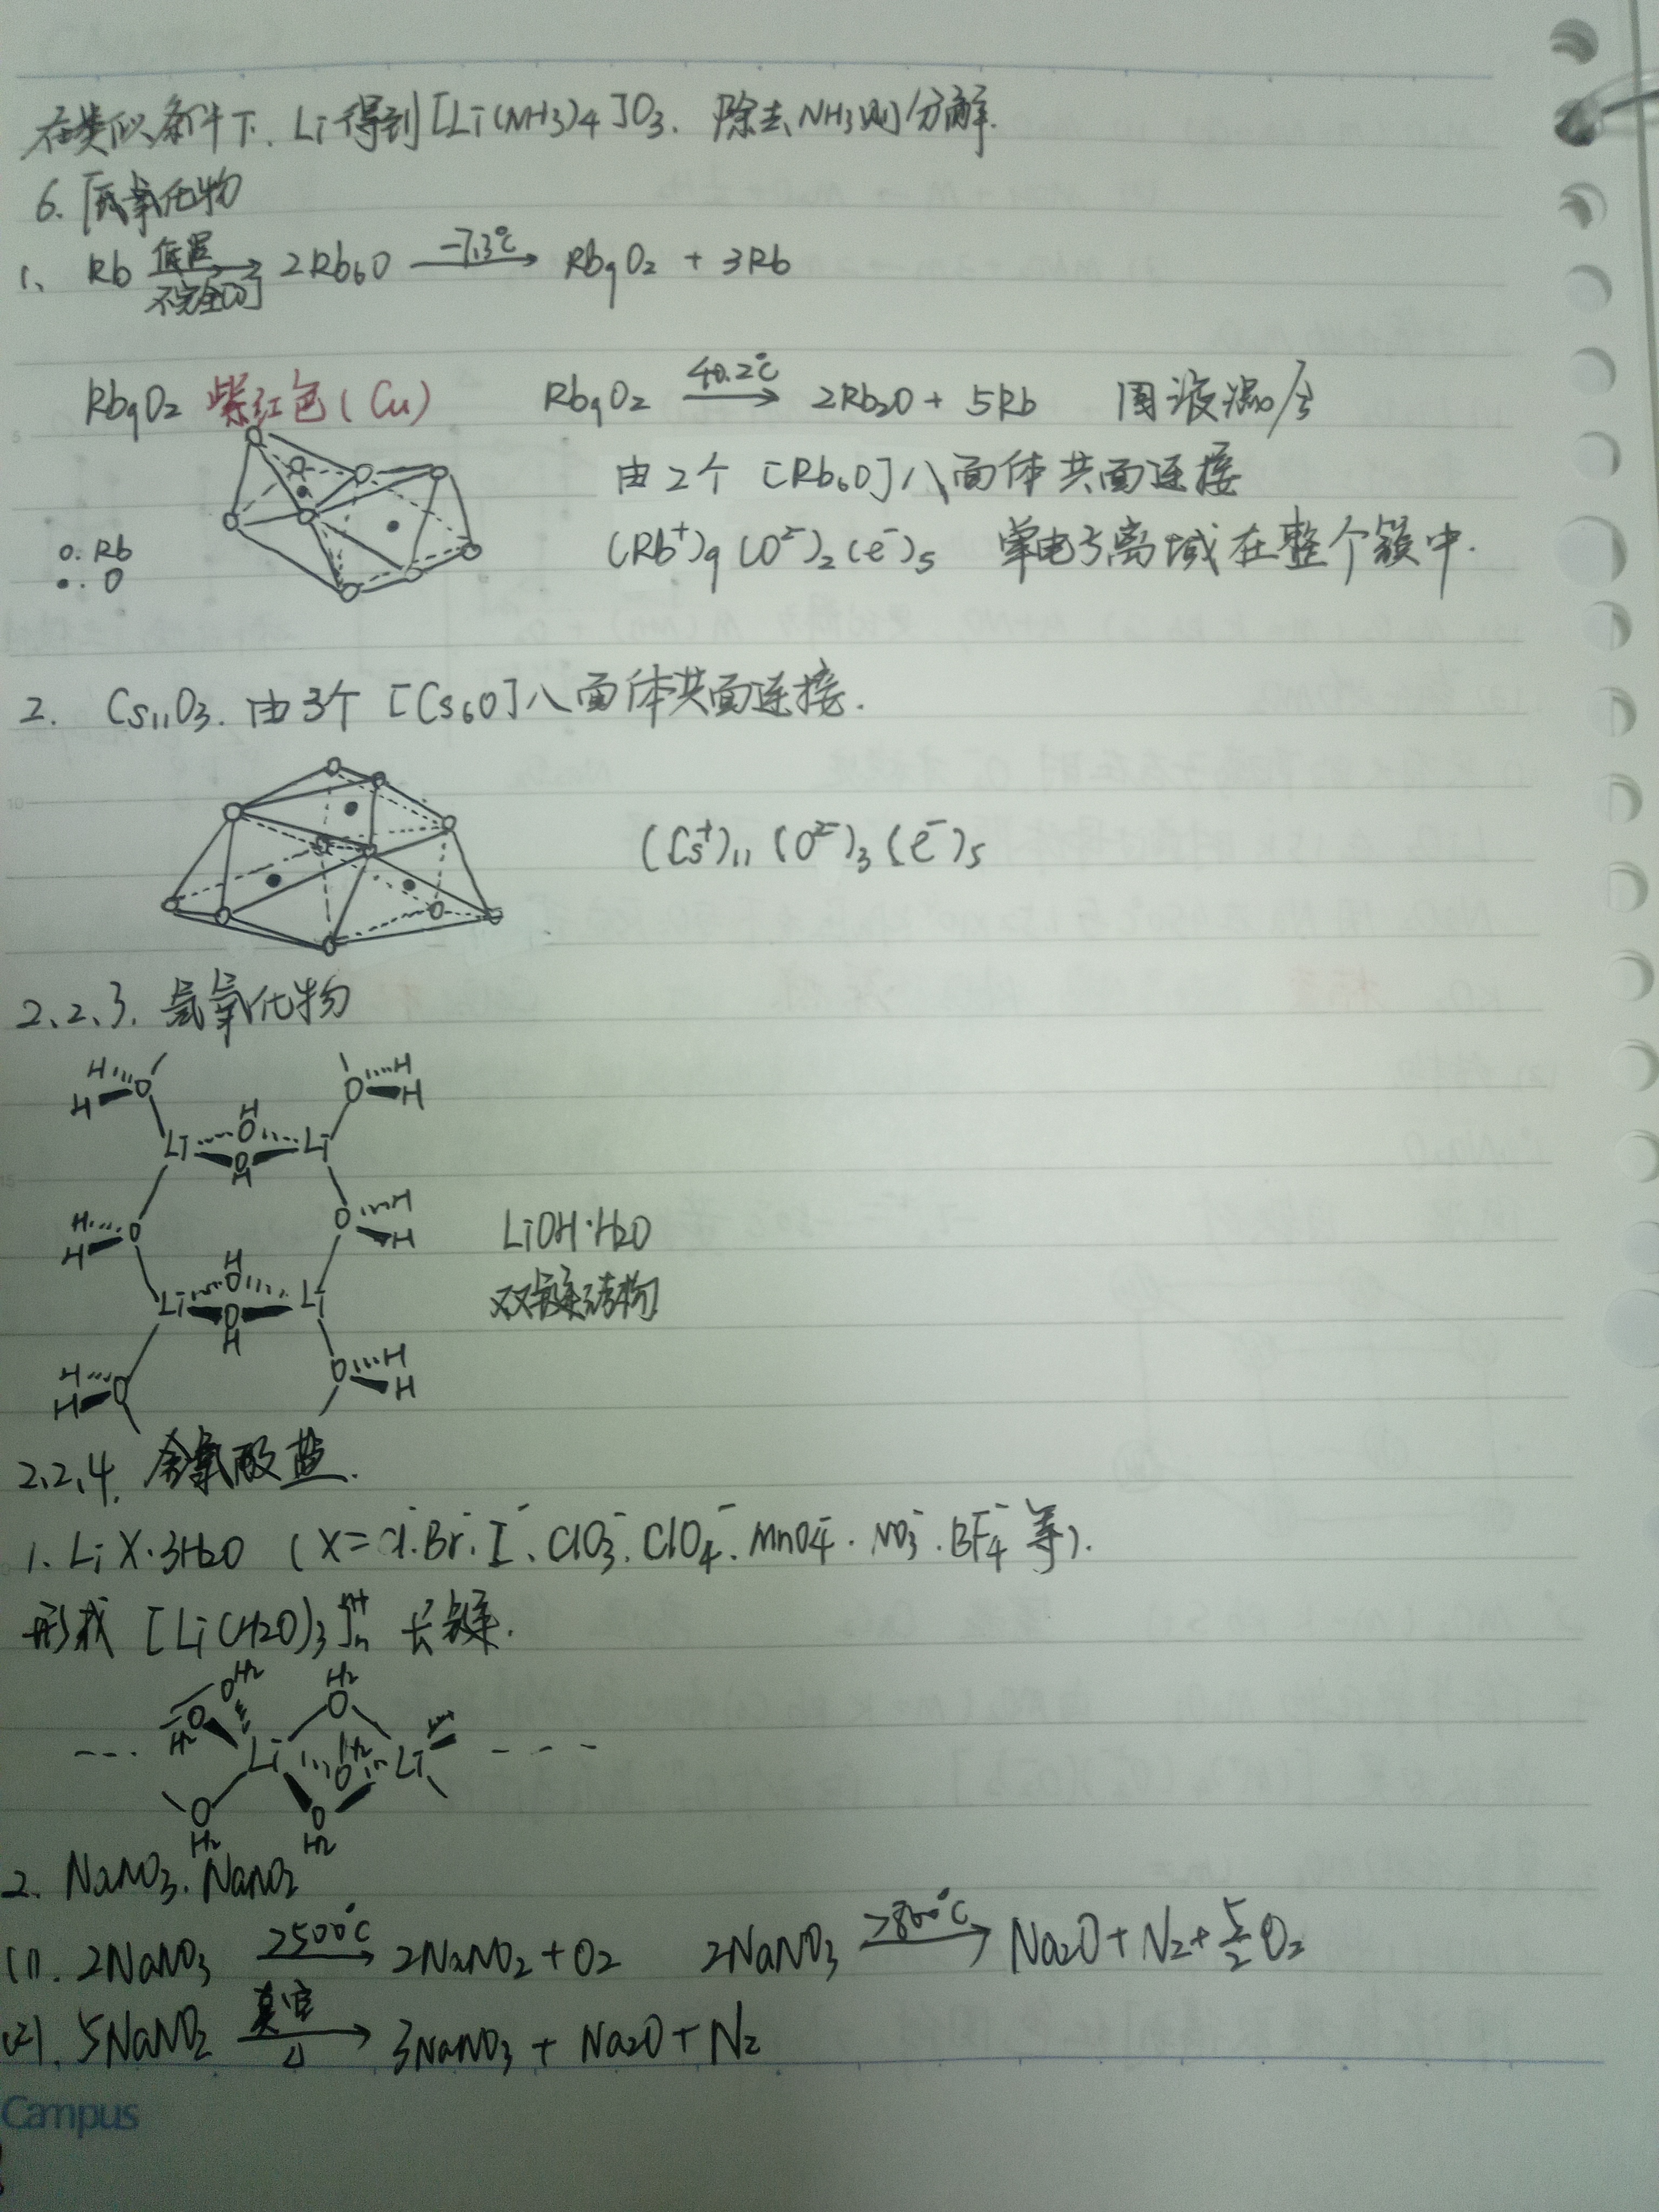 在类似条件下. Li得到[Li(NH3)4]O3. 除去NH3则分解.
6. 低氧化物
1、 Rb 低温 不完全[O] → 2Rb6O -7.3℃ → Rb9O2 + 3Rb
Rb9O2 紫红色(Cu) Rb9O2 40.2℃ → 2Rb2O + 5Rb 固液混合
由2个 [Rb6O]八面体共面连接
(Rb+)9 (O2-)2 (e-)5 单电子离域在整个簇中.
o. Rb
•. O
2. Cs11O3. 由3个 [Cs6O]八面体共面连接.
(Cs+)11 (O2-)3 (e-)5
2、2、3. 氢氧化物
H O O H
H H
H H
Li O Li
O
H
H O O H
H H
LiOH·H2O
H
Li O Li
双链结构
O
H
H O O H
H H
2、2、4. 含氧酸盐.
1. LiX·3H2O (X=Cl-.Br-.I-、ClO3-.ClO4-.MnO4-.NO3-.BF4-等).
形成 [Li(H2O)3]n n+ 长链.
OH2 H2
O O
H2
--- Li H2 Li - - -
O
O O
H2 H2
2. NaNO3. NaNO2
(1). 2NaNO3 >500℃ → 2NaNO2 + O2 2NaNO3 >800℃ → Na2O + N2 + 5/2 O2
(2). 5NaNO2 真空 △ → 3NaNO3 + Na2O + N2
Campus